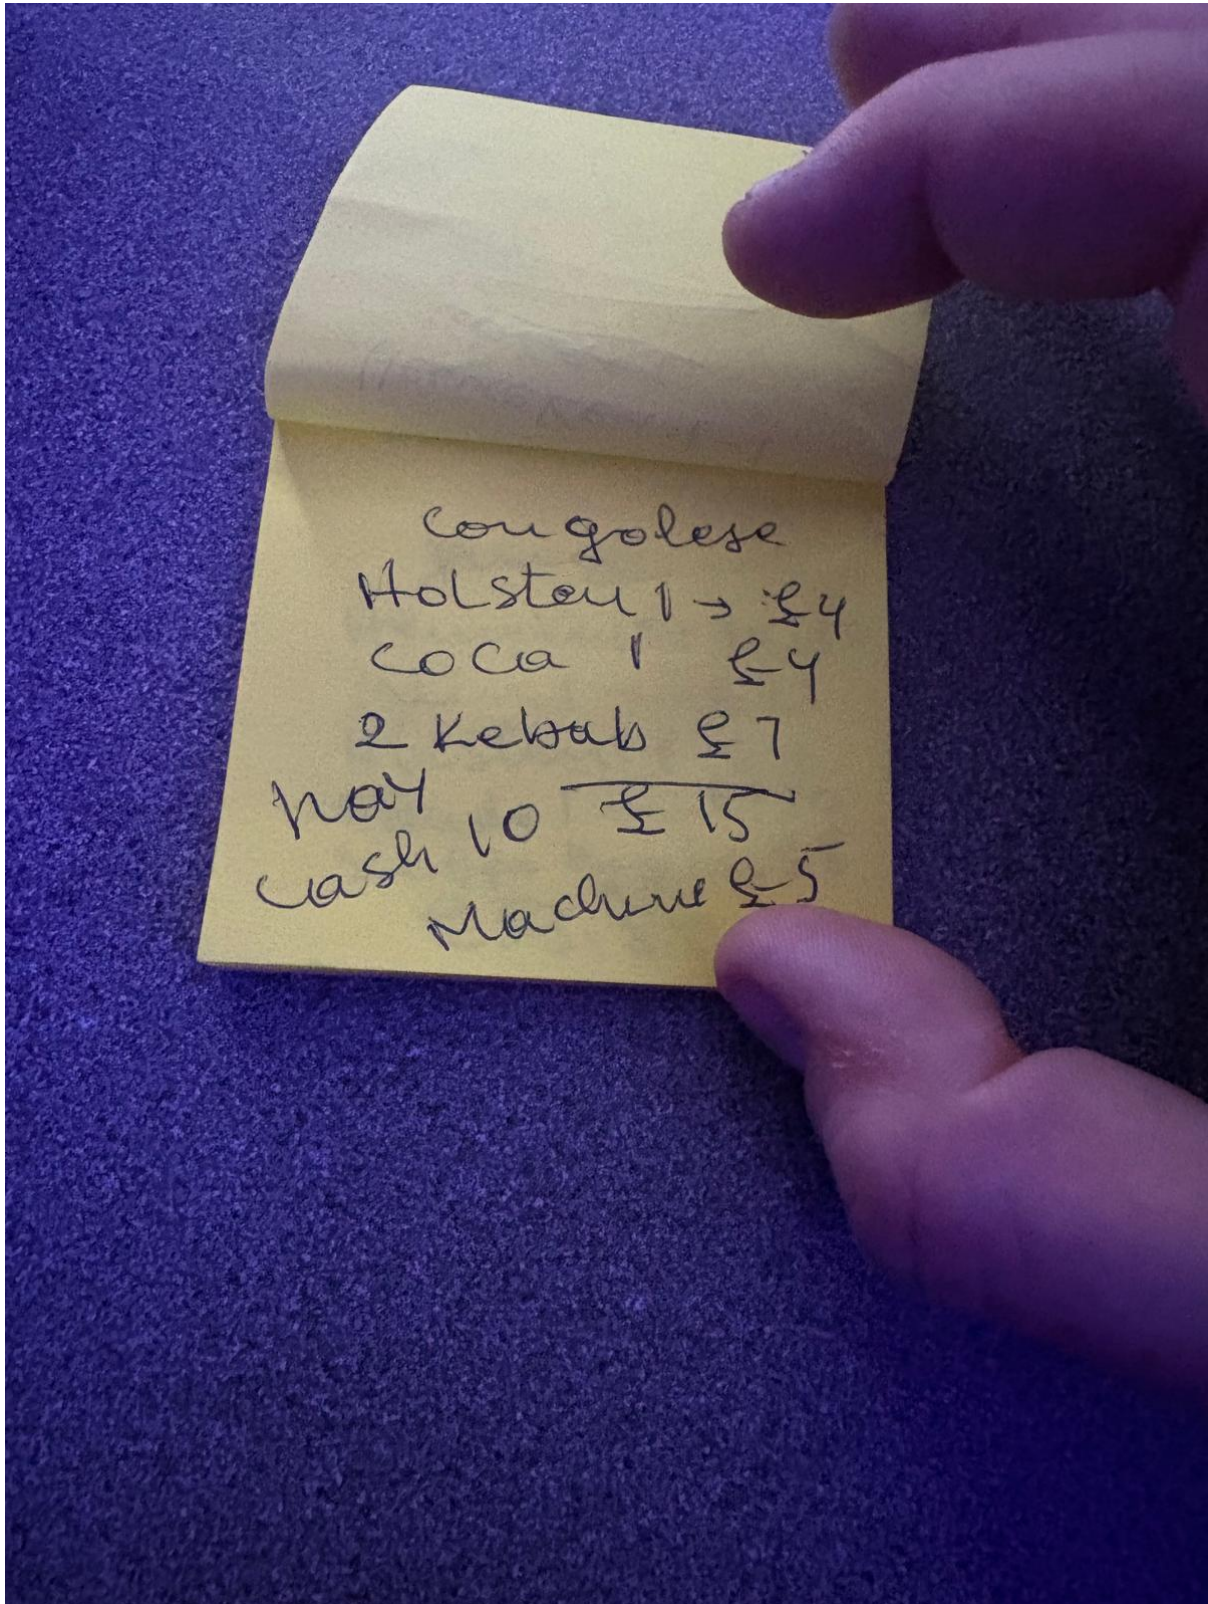 Congolese
Holsten 1 → £4
Coca 1 £4
2 Kebab £7
£15
Pay
Cash 10
Machine £5